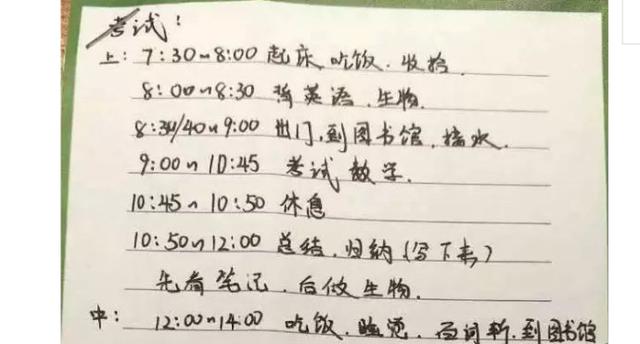 考试:
上: 7:30~8:00 起床 吃饭、收拾
8:00~8:30 英语、生物.
8:30/40~9:00 出门,到图书馆,接水
9:00~10:45 考试 数学.
10:45~10:50 休息
10:50~12:00 总结、归纳(写下来)
先看笔记、后做生物.
中: 12:00~14:00 吃饭、睡觉、百词斩、到图书馆